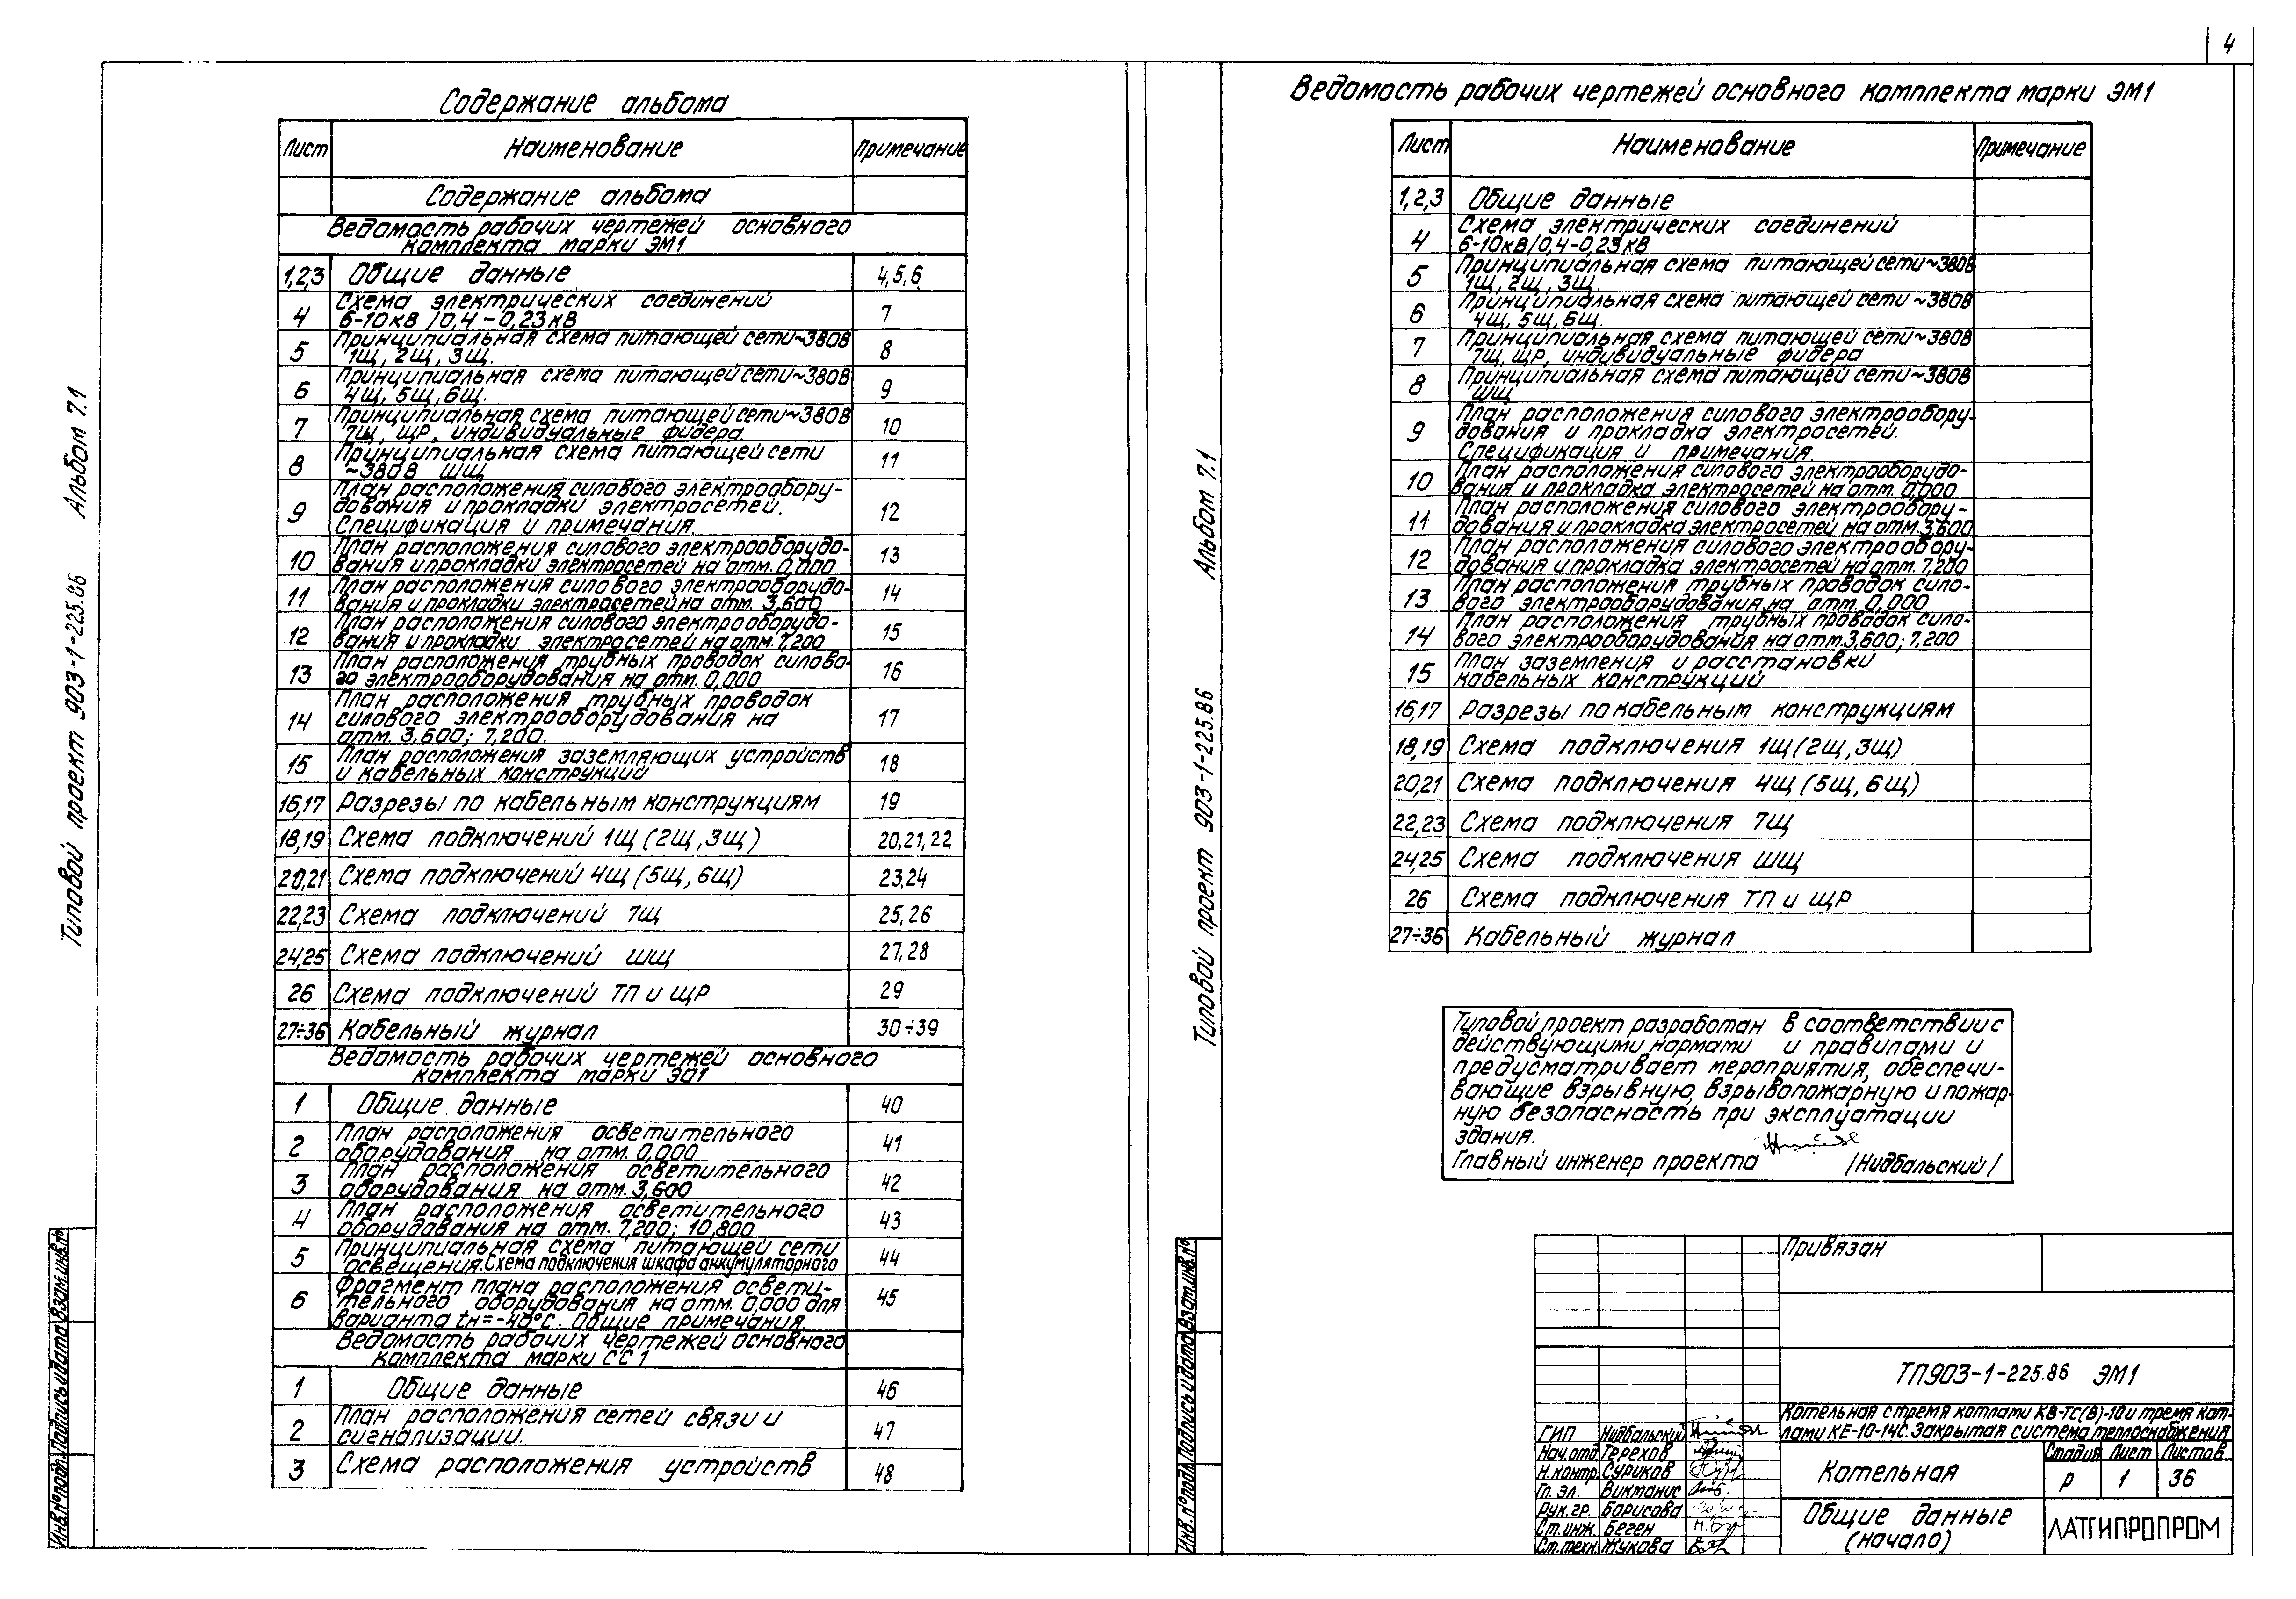 4
Содержание альбома
Лист Наименование Примечание
Содержание альбома
Ведомость рабочих чертежей основного
комплекта марки ЭМ1
1,2,3 Общие данные 4,5,6
4 Схема электрических соединений 7
6-10кв /0,4-0,23кв
5 Принципиальная схема питающей сети~380в 8
1щ, 2щ, 3щ.
6 Принципиальная схема питающей сети~380в 9
4щ, 5щ, 6щ.
7 Принципиальная схема питающей сети~380в 10
7щ, щр, индивидуальные фидера
8 Принципиальная схема питающей сети 11
~380в шщ
9 План расположения силового электрообору- 12
дования и прокладки электросетей.
Спецификация и примечания.
10 План расположения силового электрооборудо- 13
вания и прокладки электросетей на отм. 0,000
11 План расположения силового электрооборудо- 14
вания и прокладки электросетей на отм. 3,600
12 План расположения силового электрооборудо- 15
вания и прокладки электросетей на отм. 7,200
13 План расположения трубных проводок силово- 16
го электрооборудования на отм. 0,000
14 План расположения трубных проводок 17
силового электрооборудования на
отм. 3,600; 7,200.
15 План расположения заземляющих устройств 18
и кабельных конструкций
16,17 Разрезы по кабельным конструкциям 19
18,19 Схема подключений 1щ (2щ, 3щ) 20,21,22
20,21 Схема подключений 4щ (5щ, 6щ) 23,24
22,23 Схема подключений 7щ 25,26
24,25 Схема подключений шщ 27,28
26 Схема подключений ТП и щр 29
27÷36 Кабельный журнал 30÷39
Ведомость рабочих чертежей основного
комплекта марки ЭО1
1 Общие данные 40
2 План расположения осветительного 41
оборудования на отм. 0,000
3 План расположения осветительного 42
оборудования на отм. 3,600
4 План расположения осветительного 43
оборудования на отм. 7,200; 10,800
5 Принципиальная схема питающей сети 44
освещения. Схема подключения шкафа аккумуляторного
6 Фрагмент плана расположения освети- 45
тельного оборудования на отм. 0,000 для
варианта tн=-40°С. Общие примечания.
Ведомость рабочих чертежей основного
комплекта марки СС1
1 Общие данные 46
2 План расположения сетей связи и 47
сигнализации.
3 Схема расположения устройств 48
Типовой проект 903-1-225.86 Альбом 7.1
Инв.№подл. Подпись и дата Взам.инв.№
Ведомость рабочих чертежей основного комплекта марки ЭМ1
Лист Наименование Примечание
1,2,3 Общие данные
4 Схема электрических соединений
6-10кв/0,4-0,23кв
5 Принципиальная схема питающей сети~380в
1щ, 2щ, 3щ.
6 Принципиальная схема питающей сети ~380в
4щ, 5щ, 6щ.
7 Принципиальная схема питающей сети~380в
7щ, щр, индивидуальные фидера
8 Принципиальная схема питающей сети~380в
шщ
9 План расположения силового электрообору-
дования и прокладка электросетей.
Спецификация и примечания.
10 План расположения силового электрооборудо-
вания и прокладка электросетей на отм. 0,000
11 План расположения силового электрообору-
дования и прокладка электросетей на отм. 3,600
12 План расположения силового электрообору-
дования и прокладка электросетей на отм. 7,200
13 План расположения трубных проводок сило-
вого электрооборудования на отм. 0,000
14 План расположения трубных проводок сило-
вого электрооборудования на отм. 3,600; 7,200
15 План заземления и расстановки
кабельных конструкций
16,17 Разрезы по кабельным конструкциям
18,19 Схема подключения 1щ (2щ, 3щ)
20,21 Схема подключения 4щ (5щ, 6щ)
22,23 Схема подключения 7щ
24,25 Схема подключения шщ
26 Схема подключения ТП и щр
27÷36 Кабельный журнал
Типовой проект разработан в соответствии с
действующими нормами и правилами и
предусматривает мероприятия, обеспечи-
вающие взрывную, взрывопожарную и пожар-
ную безопасность при эксплуатации
здания.
Главный инженер проекта /Нидбальский/
Типовой проект 903-1-225.86 Альбом 7.1
Инв.№подл. Подпись и дата Взам.инв.№
Привязан
ТП903-1-225.86 ЭМ1
Котельная с тремя котлами КВ-ТС(В)-10 и тремя кот-
лами КЕ-10-14С. Закрытая система теплоснабжения
ГИП Нидбальский
Нач.отд. Терехов
Н.контр. Суриков
Гл. эл. Виктанис
Рук. гр. Борисова
Ст.инж. Беген
Ст.техн. Жукова
Котельная
Стадия Лист Листов
Р 1 36
Общие данные
(начало)
ЛАТГИПРОПРОМ